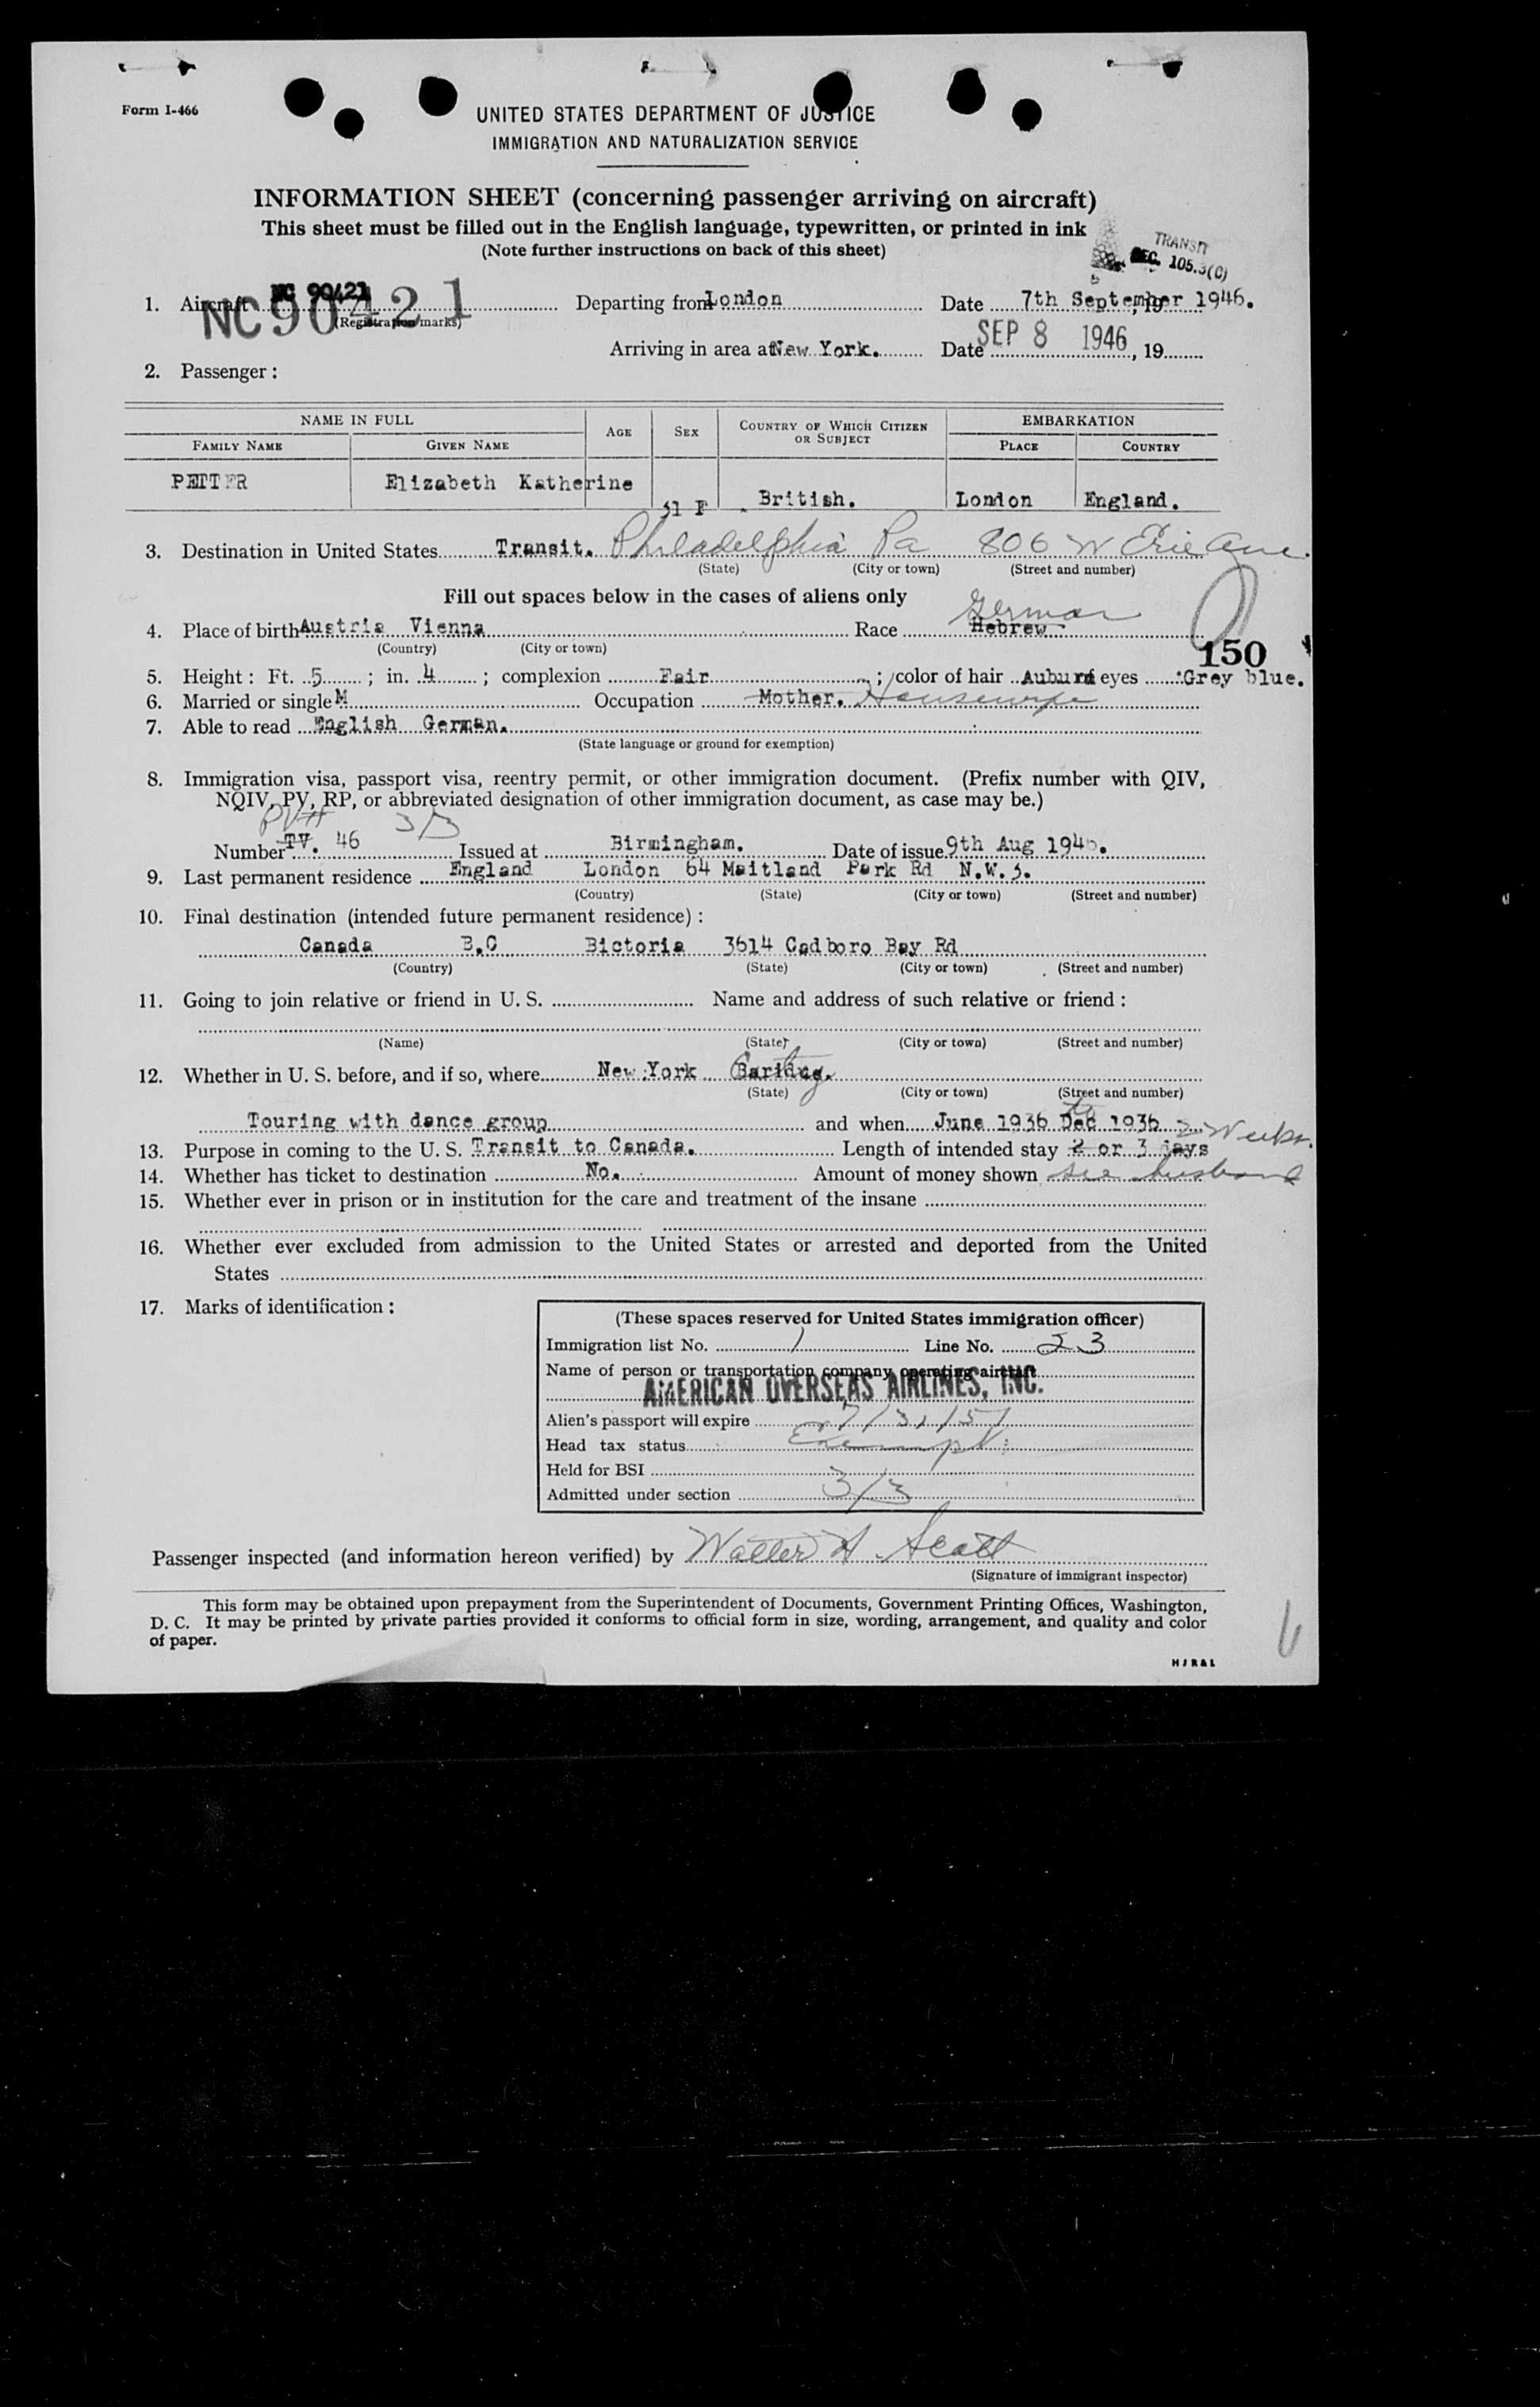 Form I-466
UNITED STATES DEPARTMENT OF JUSTICE
IMMIGRATION AND NATURALIZATION SERVICE
INFORMATION SHEET (concerning passenger arriving on aircraft)
This sheet must be filled out in the English language, typewritten, or printed in ink
(Note further instructions on back of this sheet)
TRANSIT
SEC. 105.3(C)
1. Aircraft NC 90421 Departing from London Date 7th September, 19 1946.
NC90421
(Registration marks)
Arriving in area at New York. Date SEP 8 1946, 19
2. Passenger:
NAME IN FULL AGE SEX COUNTRY OF WHICH CITIZEN OR SUBJECT EMBARKATION
FAMILY NAME GIVEN NAME PLACE COUNTRY
PETTER Elizabeth Katherine 31 F British. London England.
3. Destination in United States Transit. Philadelphia Pa 806 W Erie Ave.
(State) (City or town) (Street and number)
Fill out spaces below in the cases of aliens only
German
4. Place of birth Austria Vienna Race Hebrew
(Country) (City or town)
150
5. Height: Ft. 5 ; in. 4 ; complexion Fair ; color of hair Auburn eyes Grey blue.
6. Married or single M Occupation Mother. Housewife
7. Able to read English German.
(State language or ground for exemption)
8. Immigration visa, passport visa, reentry permit, or other immigration document. (Prefix number with QIV,
NQIV, PV, RP, or abbreviated designation of other immigration document, as case may be.)
PV# 3/3
Number TV. 46 Issued at Birmingham. Date of issue 9th Aug 1946.
9. Last permanent residence England London 64 Maitland Park Rd N.W.3.
(Country) (State) (City or town) (Street and number)
10. Final destination (intended future permanent residence):
Canada B.C Bictoria 3614 Cadboro Bay Rd
(Country) (State) (City or town) (Street and number)
11. Going to join relative or friend in U. S. Name and address of such relative or friend:
(Name) (State) (City or town) (Street and number)
12. Whether in U. S. before, and if so, where New York
(State) (City or town) (Street and number)
Touring with dance group and when June 1936 to Dec 1936
2 Weeks.
13. Purpose in coming to the U. S. Transit to Canada. Length of intended stay 2 or 3 days
14. Whether has ticket to destination No. Amount of money shown see husband
15. Whether ever in prison or in institution for the care and treatment of the insane
16. Whether ever excluded from admission to the United States or arrested and deported from the United
States
17. Marks of identification:
(These spaces reserved for United States immigration officer)
Immigration list No. 1 Line No. 23
Name of person or transportation company operating aircraft
AMERICAN OVERSEAS AIRLINES, INC.
Alien's passport will expire 7/31/51
Head tax status Exempt
Held for BSI
Admitted under section 3/3
Passenger inspected (and information hereon verified) by Walter A Scott
(Signature of immigrant inspector)
This form may be obtained upon prepayment from the Superintendent of Documents, Government Printing Offices, Washington,
D. C. It may be printed by private parties provided it conforms to official form in size, wording, arrangement, and quality and color
of paper.
HJR&L